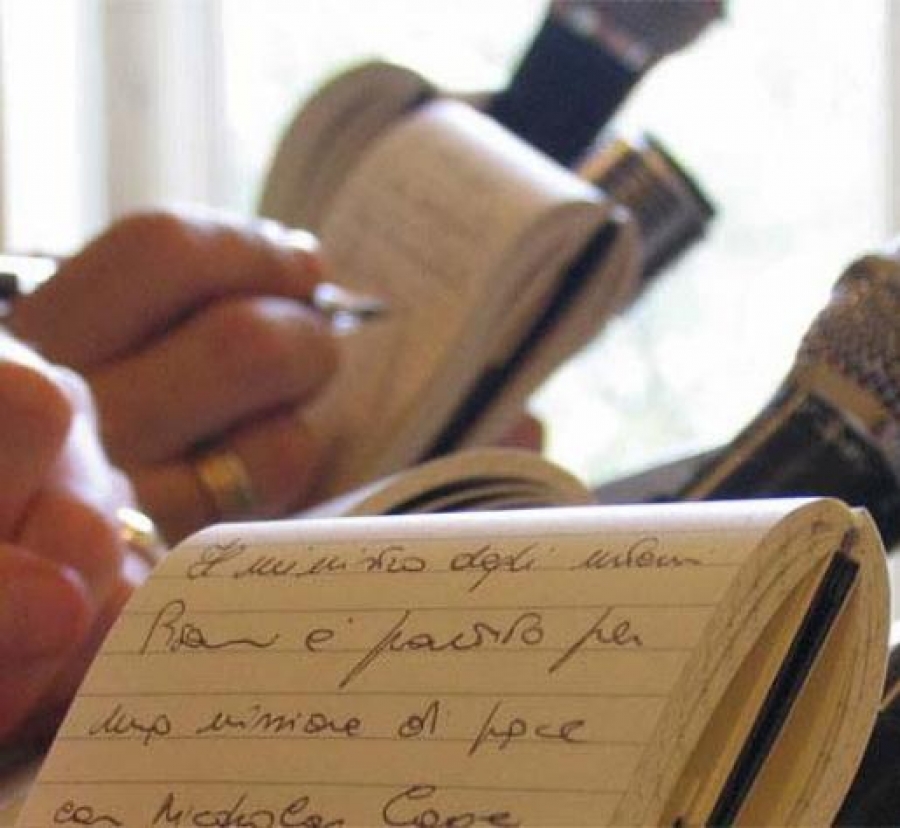 Il ministro degli interni
è partito per
una missione di pace
con Nicholas